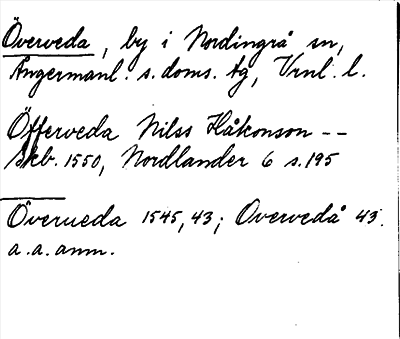 Överveda, by i Nordingrå sn,
Ångermanl. s. doms. tg, Vrnl. l.
Öfferveda Nilss Håkonson --
Skb. 1550, Nordlander 6 s. 195
Överueda 1545, 43; Overvedå 43.
a. a. anm.